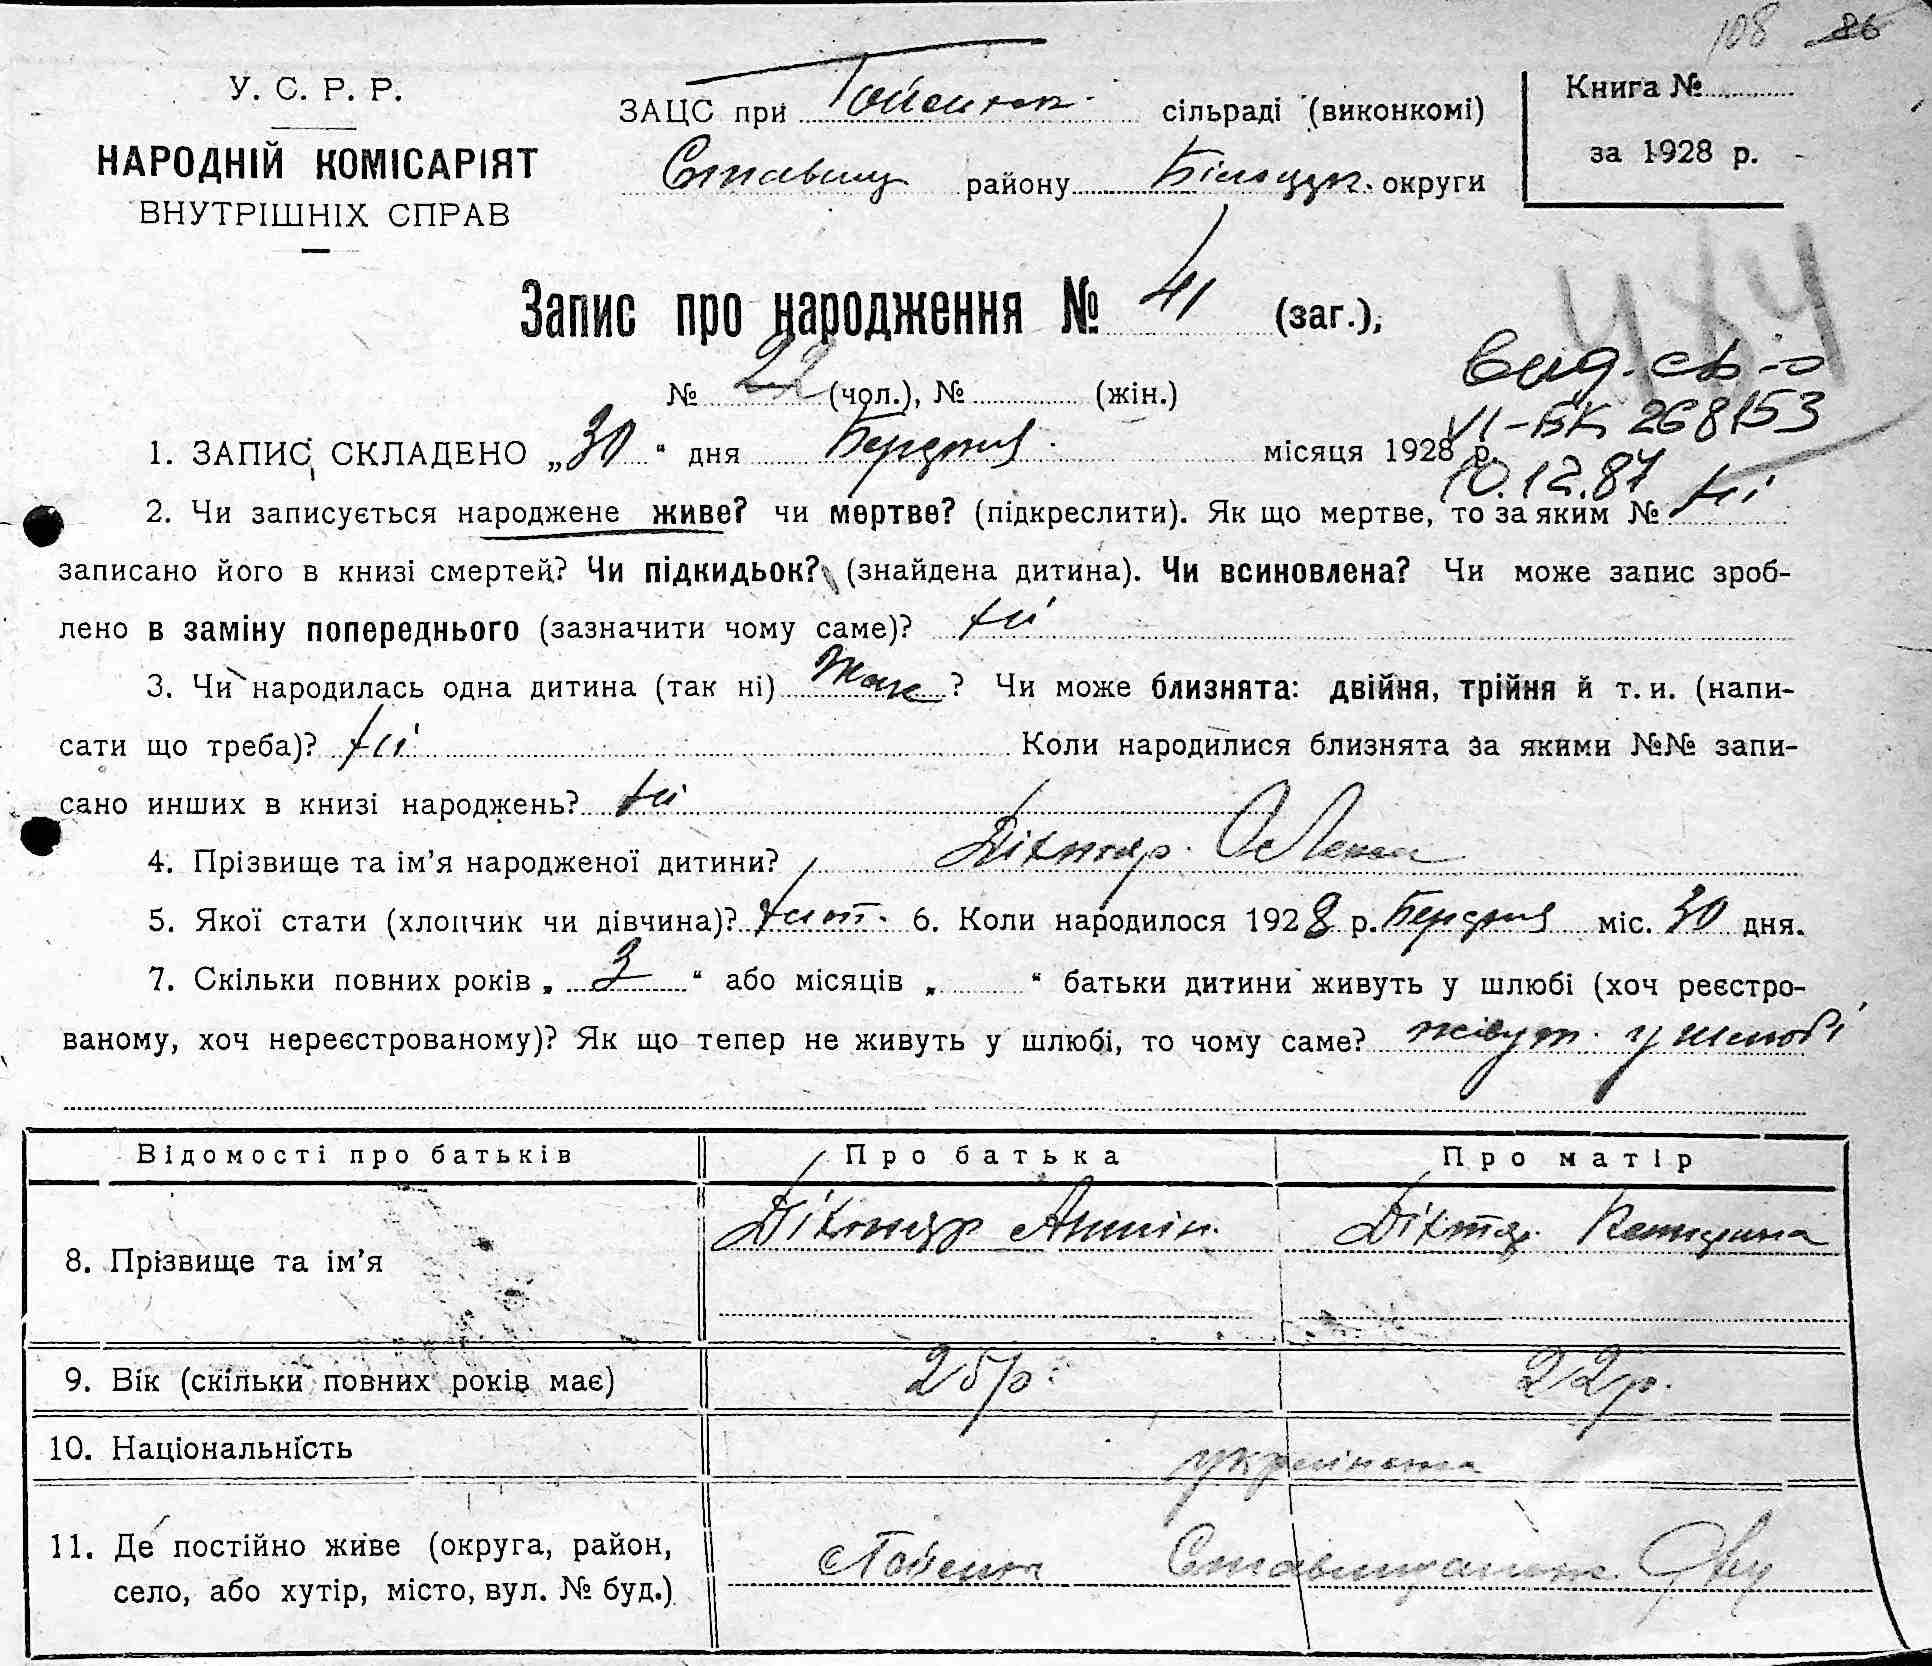 108 86
У. С. Р. Р.
НАРОДНІЙ КОМІСАРІЯТ
ВНУТРІШНІХ СПРАВ
ЗАЦС при сільраді (виконкомі)
Ставищ району Білоцерк. округи
Книга №
за 1928 р.
Запис про народження № 41 (заг.),
№ 22 (чол.), № (жін.)
вид. св-о
VI-БК 268153
10.12.87
1. ЗАПИС СКЛАДЕНО „30“ дня Березня місяця 1928 р.
2. Чи записується народжене живе? чи мертве? (підкреслити). Як що мертве, то за яким № ні
записано його в книзі смертей? Чи підкидьок? (знайдена дитина). Чи всиновлена? Чи може запис зроб-
лено в заміну попереднього (зазначити чому саме)? ні
3. Чи народилась одна дитина (так ні) так ? Чи може близнята: двійня, трійня й т. и. (напи-
сати що треба)? ні Коли народилися близнята за якими №№ запи-
сано инших в книзі народжень? ні
4. Прізвище та ім’я народженої дитини? Діхтяр.
5. Якої стати (хлопчик чи дівчина)? 6. Коли народилося 1928 р. Березня міс. 30 дня.
7. Скільки повних років „ 3 “ або місяців „ “ батьки дитини живуть у шлюбі (хоч реєстро-
ваному, хоч нереєстрованому)? Як що тепер не живуть у шлюбі, то чому саме? живут. у шлюбі
Відомості про батьків Про батька Про матір
8. Прізвище та ім’я Діхтяр Діхтяр.
9. Вік (скільки повних років має) 25 р. 22 р.
10. Національність
11. Де постійно живе (округа, район,
село, або хутір, місто, вул. № буд.)